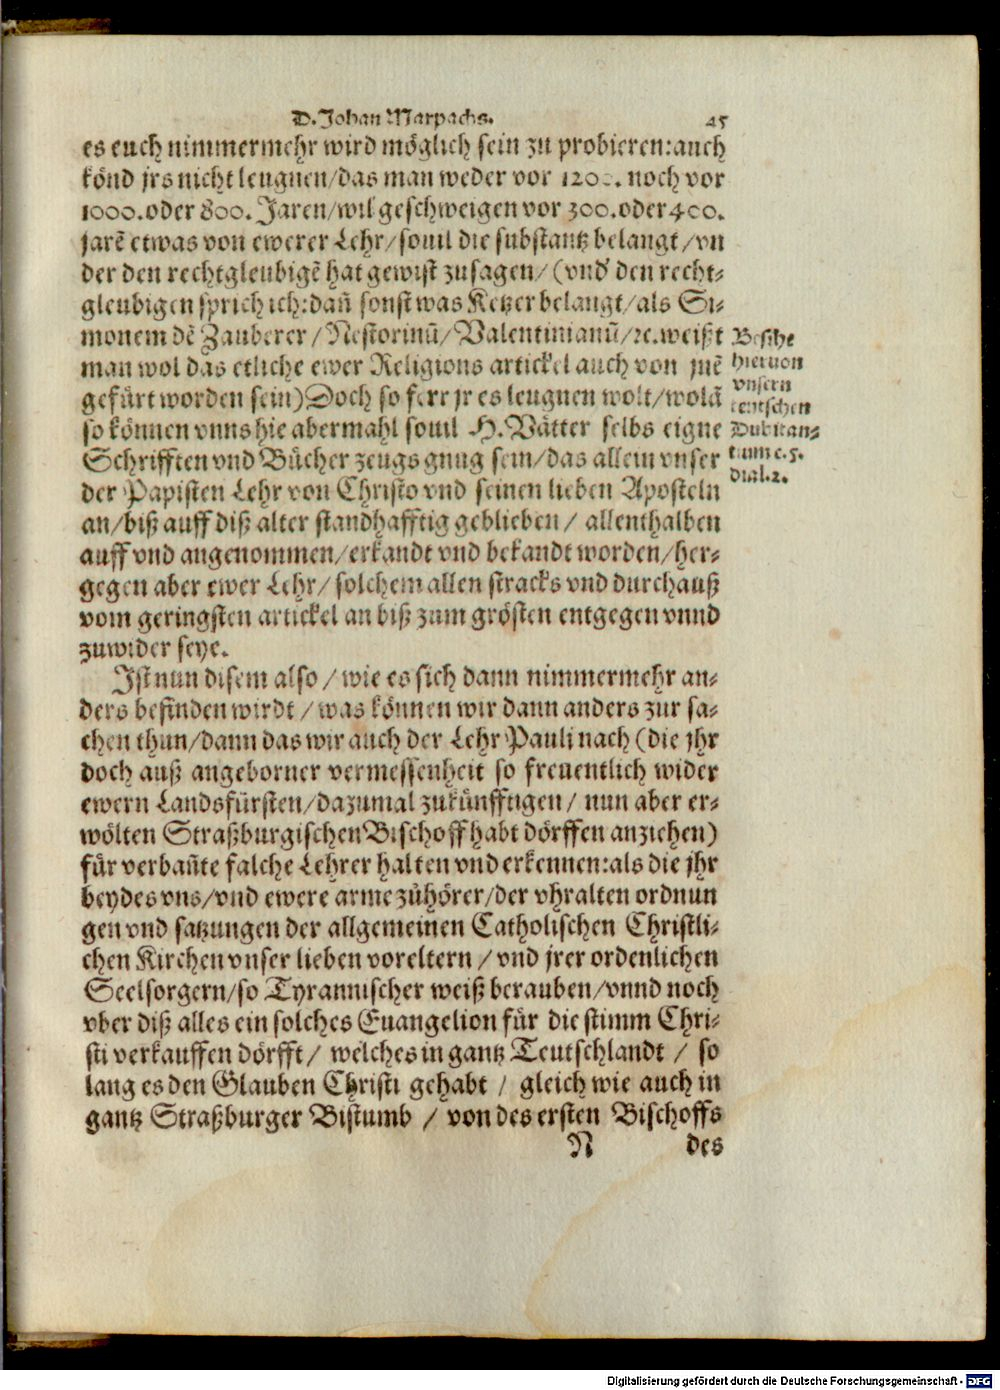 D. Johan Marpachs. 45
es euch nimmermehr wird möglich sein zu probieren: auch
könd jrs nicht leugnen/ das man weder vor 1200. noch vor
1000. oder 800. Jaren/ wil geschweigen vor 300. oder 400.
jarē etwas von ewerer Lehr/ souil die substantz belangt/ vn
der den rechtgleubigē hat gewist zusagen/ (vnd den recht-
gleubigen sprich ich: dañ sonst was Ketzer belangt/ als Si-
monem dē Zauberer/ Nestorinū/ Valentinianū/ ꝛc. weißt
man wol das etliche ewer Religions artickel auch von jnē
gefürt worden sein) Doch so ferr jr es leugnen wolt/ wolā
so können vnns hie abermahl souil H. Vätter selbs eigne
Schrifften vnd Bücher zeugs gnug sein/ das allein vnser
der Papisten Lehr von Christo vnd seinen lieben Aposteln
an/ biß auff diß alter standhafftig geblieben/ allenthalben
auff vnd angenommen/ erkandt vnd bekandt worden/ her-
gegen aber ewer Lehr/ solchem allen stracks vnd durchauß
vom geringsten artickel an biß zum grösten entgegen vnnd
zuwider seye.
Besihe
hieruon
vnsern
teutschen
Dubitan-
tium c. 5.
dial. 2.
Ist nun disem also/ wie es sich dann nimmermehr an-
ders befinden wirdt/ was können wir dann anders zur sa-
chen thun/ dann das wir auch der Lehr Pauli nach (die jhr
doch auß angeborner vermessenheit so freuentlich wider
ewern Landsfürsten/ dazumal zukünfftigen/ nun aber er-
wölten Straßburgischen Bischoff habt dörffen anziehen)
für verbañte falche Lehrer halten vnd erkennen: als die jhr
beydes vns/ vnd ewere arme zůhörer/ der vhralten ordnun
gen vnd satzungen der allgemeinen Catholischen Christli-
chen Kirchen vnser lieben voreltern/ vnd jrer ordenlichen
Seelsorgern/ so Tyrannischer weiß berauben/ vnnd noch
vber diß alles ein solches Euangelion für die stimm Chri-
sti verkauffen dörfft/ welches in gantz Teutschlandt/ so
lang es den Glauben Christi gehabt/ gleich wie auch in
gantz Straßburger Bistumb/ von des ersten Bischoffs
N des
Digitalisierung gefördert durch die Deutsche Forschungsgemeinschaft - DFG